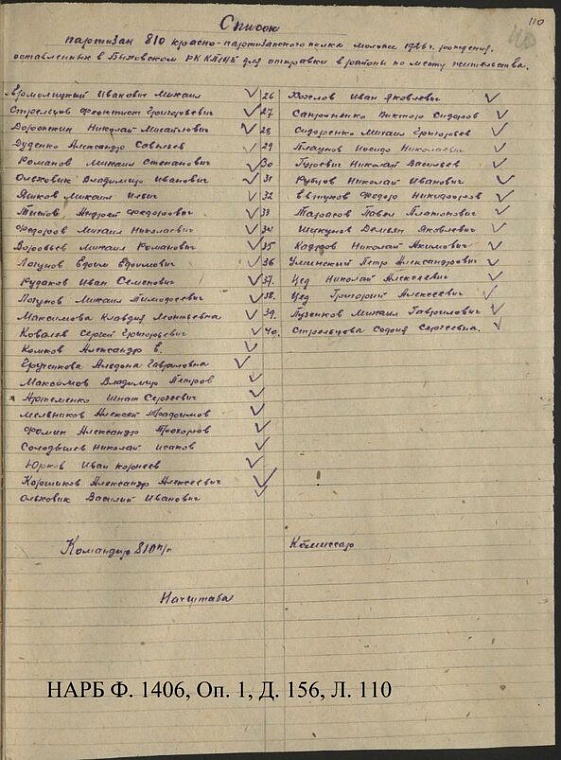 110
Список
партизан 810 красно-партизанского полка моложе 1926 г. рождения,
оставленных в Быховском РК КП(б)Б для отправки в районы по месту жительства.
Ермолицкий Иванович Михаил
Стрельцов Феоктист Григорьевич
Дорошкин Николай Михайлович
Дуденко Александр Савельев
Романов Михаил Степанович
Ольховик Владимир Иванович
Яшков Михаил Ильич
Титов Андрей Федорович
Федоров Михаил Николаевич
Воробьев Михаил Романович
Логунов Ефим Ефимович
Рудаков Иван Семенович
Логунов Михаил Тимофеевич
Максимова Клавдия Леонтьевна
Ковалев Сергей Григорьевич
Комков Александр Е.
Гавриловна
Максимов Владимир Петров
Артеменко Игнат Сергеевич
Мельников Алексей
Фомин Александр Прохоров
Солодышев Николай Исаков
Юрков Иван Корнеев
Коршиков Александр Алексеевич
Ольховик Василий Иванович
26 Козлов Иван Яковлевич
27 Виктор Сидоров
28 Сидоренко Михаил Григорьев
29 Николаевич
30 Гуревич Николай Васильев
31 Рубцов Николай Иванович
32 Евтухов Федор Никифоров
33 Тарасов Павел Платонович
34 Шункунов Демьян Яковлевич
35 Кадуров Николай Акимович
36 Улинский Петр Александрович
37. Цед Николай Алексеевич
38. Цед Григорий Алексеевич
39. Пузенков Михаил Гаврилович
40. Стрельцова Софья Сергеевна.
Командир 810 п/п
Комиссар
Начштаба
НАРБ Ф. 1406, Оп. 1, Д. 156, Л. 110